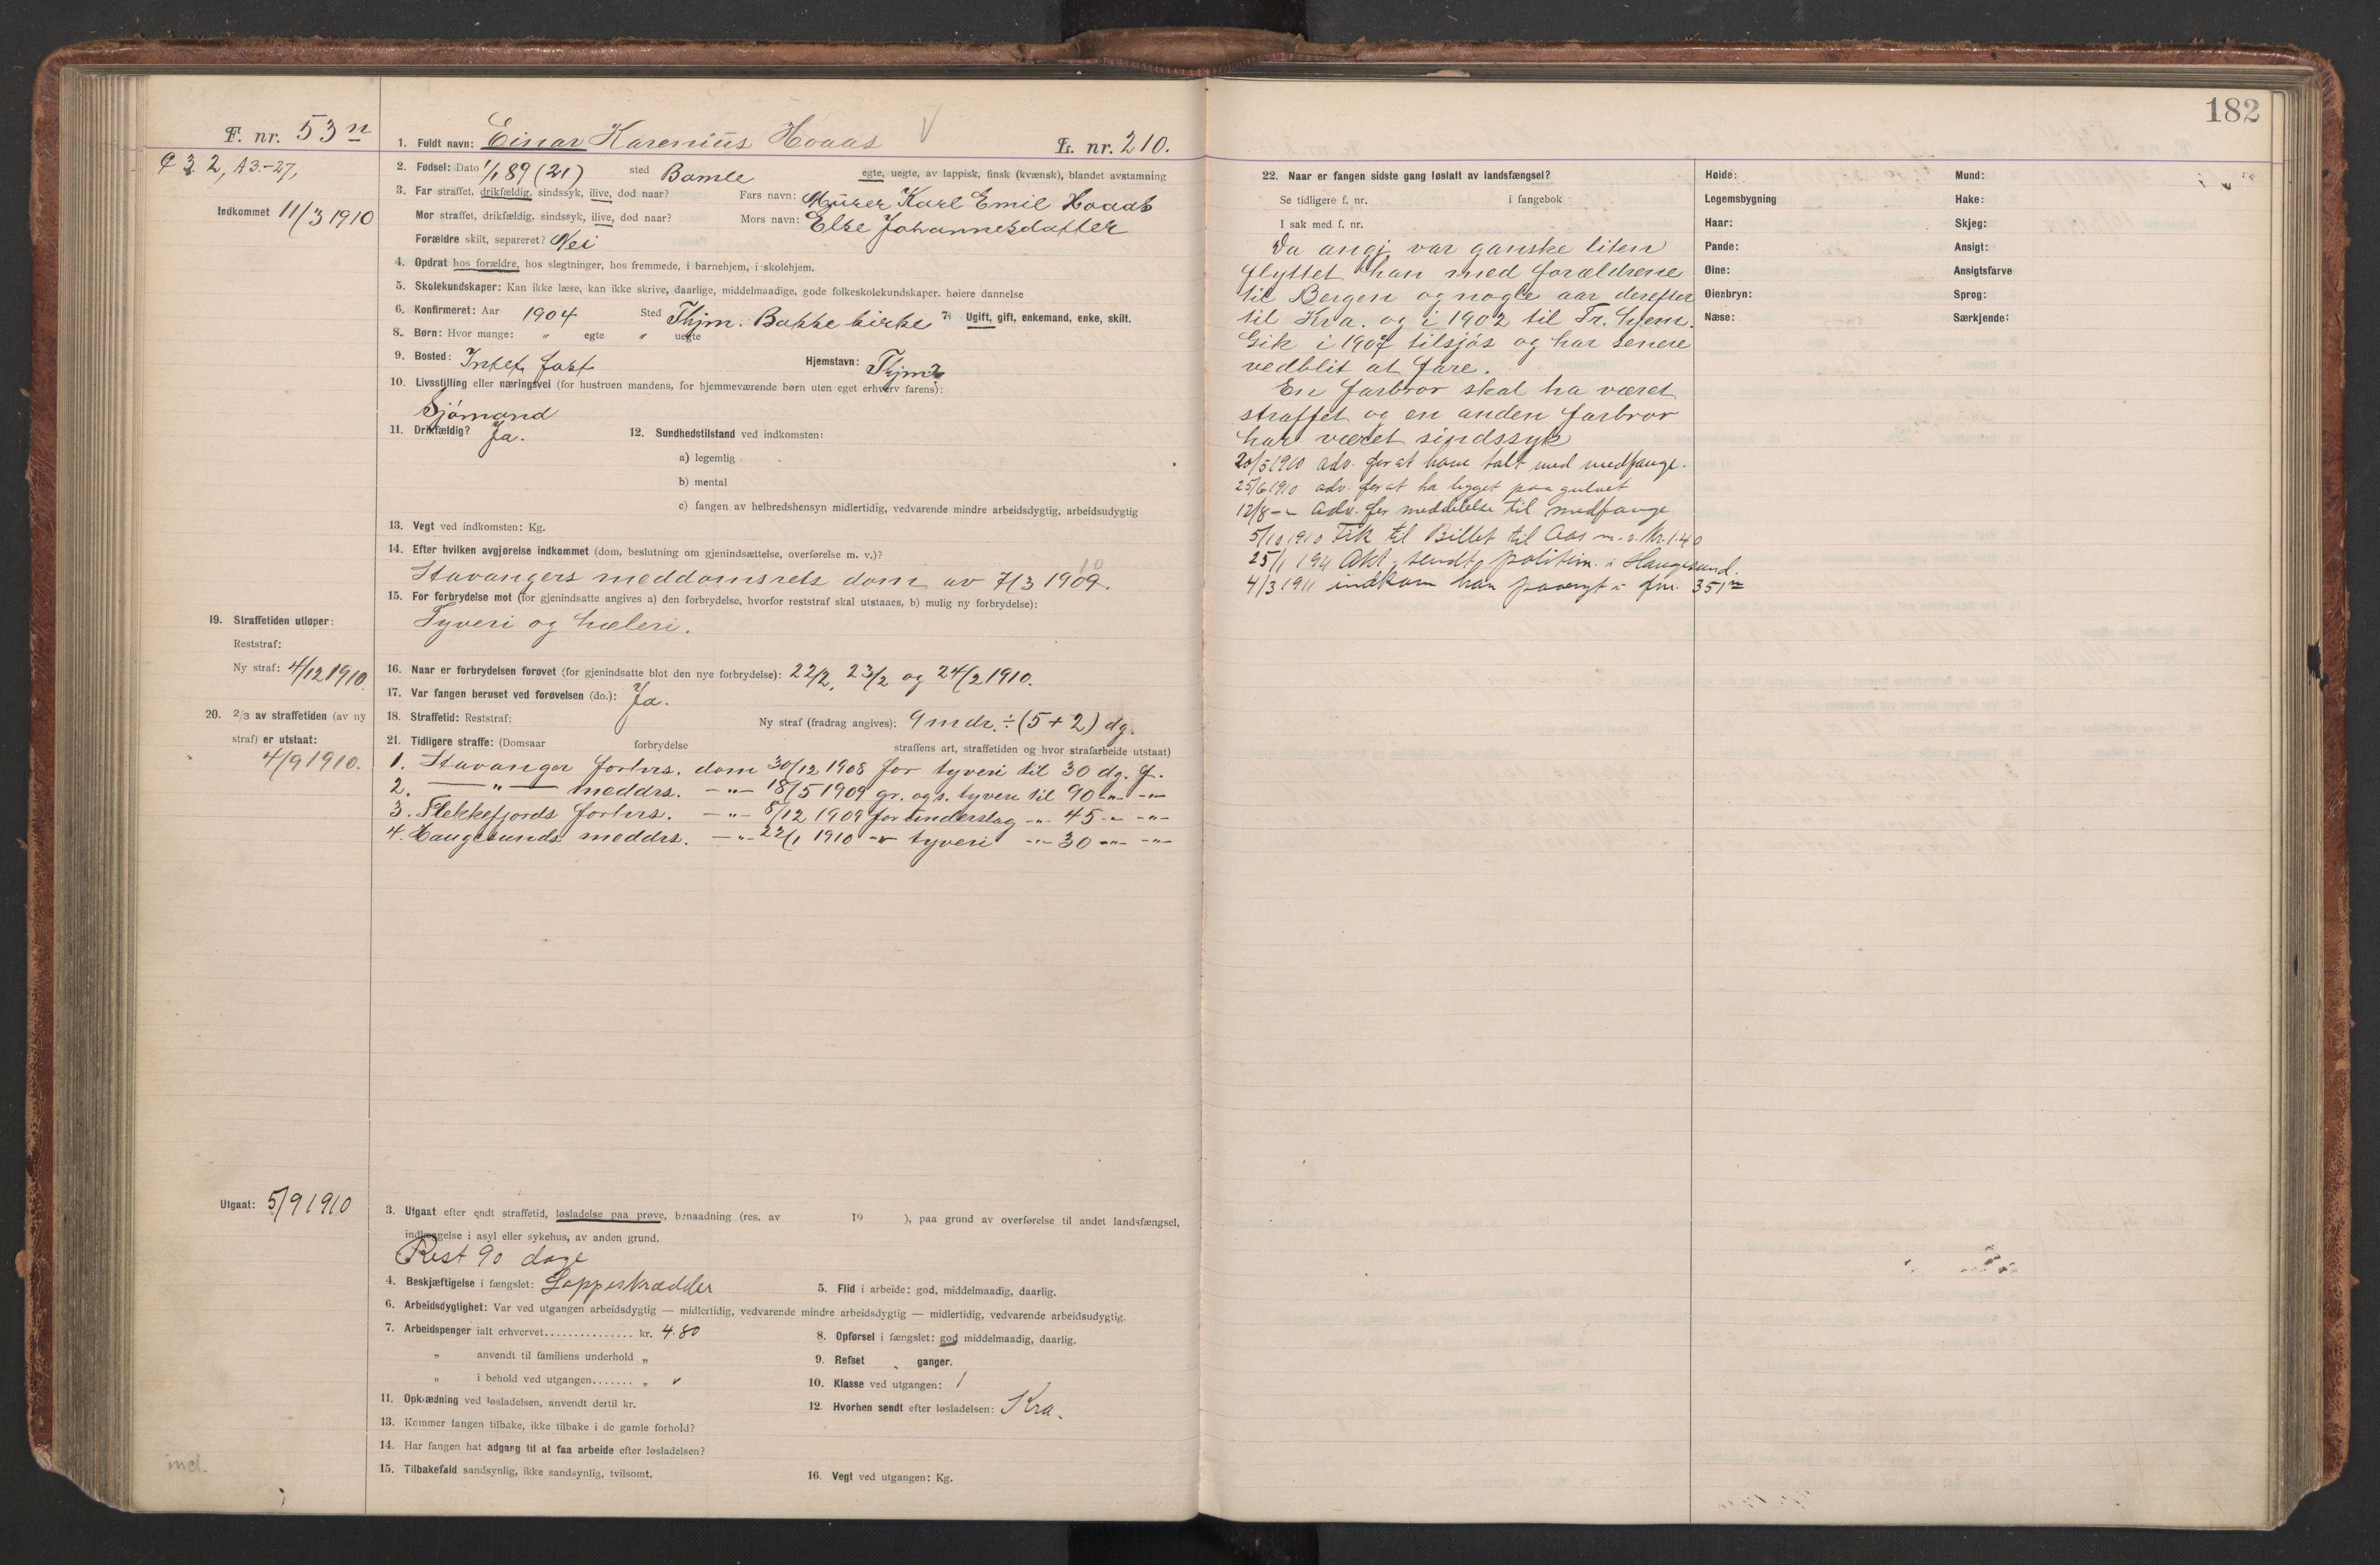 182
F. nr. 53n
1. Fuldt navn: Einar Karenius Hoaas V L. nr. 210.
C 3 2, A3.-27,
2. Fødsel: Dato 1/1 89 (21) sted Bamle egte, uegte, av lappisk, finsk (kvænsk), blandet avstamning
3. Far straffet, drikfældig, sindssyk, ilive, død naar? Fars navn: Murer Karl Emil Hoaas
Indkommet 11/3 1910
Mor straffet, drikfældig, sindssyk, ilive, død naar? Mors navn: Else Johannesdatter
Forældre skilt, separeret? Nei
4. Opdrat hos forældre, hos slegtninger, hos fremmede, i barnehjem, i skolehjem.
5. Skolekundskaper: Kan ikke læse, kan ikke skrive, daarlige, middelmaadige, gode folkeskolekundskaper. høiere dannelse
6. Konfirmeret: Aar 1904 Sted Thjm. Bakke kirke 7. Ugift, gift, enkemand, enke, skilt.
8. Børn: Hvor mange: " egte " uegte
9. Bosted: Intet fast Hjemstavn: Thjm?
10. Livsstilling eller næringsvei (for hustruen mandens, for hjemmeværende børn uten eget erhverv farens):
Sjómand
11. Drikfældig? Ja. 12. Sundhedstilstand ved indkomsten:
a) legemlig
b) mental
c) fangen av helbredshensyn midlertidig, vedvarende mindre arbeidsdygtig, arbeidsudygtig
13. Vegt ved indkomsten: Kg.
14. Efter hvilken avgjørelse indkommet (dom, beslutning om gjenindsættelse, overførelse m. v.)?
10
Stavangers meddomsrets dom av 7/3 1909.
15. For forbrydelse mot (for gjenindsatte angives a) den forbrydelse, hvorfor reststraf skal utstaaes, b) mulig ny forbrydelse):
Tyveri og hæleri.
19. Straffetiden utløper:
Reststraf:
Ny straf: 4/12 1910.
16. Naar er forbrydelsen forøvet (for gjenindsatte blot den nye forbrydelse): 22/2, 23/2 og 24/2 1910.
17. Var fangen beruset ved forøvelsen (do.): Ja.
20. 2/3 av straffetiden (av ny
straf) er utstaat:
4/9 1910.
18. Straffetid: Reststraf: Ny straf (fradrag angives): 9 mdr. ÷ (5 + 2) dg.
21. Tidligere straffe: (Domsaar forbrydelse straffens art, straffetiden og hvor strafarbeide utstaat)
1. Stavanger forhrs. dom 30/12 1908 for tyveri til 30 dg. f.
2. — " — meddrs. - " - 18/5 1909 gr. ogs. tyveri til 90 - " - - " -
3. Flekkefjords forhrs. - " - 8/12 1909 for underslag - " - 45 - " - - " -
4. Haugesunds meddrs. - " - 22/1 1910 - " - tyveri - " - 30 - " - - " -
Utgaat: 5/9 1910
3. Utgaat efter endt straffetid, løsladelse paa prøve, benaadning (res. av 19 ), paa grund av overførelse til andet landsfængsel,
indlæggelse i asyl eller sykehus, av anden grund.
Rest 90 dage
4. Beskjæftigelse i fængslet: Lappeskrædder 5. Flid i arbeide: god, middelmaadig, daarlig.
6. Arbeidsdygtighet: Var ved utgangen arbeidsdygtig — midlertidig, vedvarende mindre arbeidsdygtig — midlertidig, vedvarende arbeidsudygtig.
7. Arbeidspenger ialt erhvervet............... kr. 4.80 8. Opførsel i fængslet: god middelmaadig, daarlig.
" anvendt til familiens underhold " 9. Refset " ganger.
" i behold ved utgangen....... " v 10. Klasse ved utgangen: 1
11. Opklædning ved løsladelsen, anvendt dertil kr. 12. Hvorhen sendt efter løsladelsen: Kra.
13. Kommer fangen tilbake, ikke tilbake i de gamle forhold?
14. Har fangen hat adgang til at faa arbeide efter løsladelsen?
15. Tilbakefald sandsynlig, ikke sandsynlig, tvilsomt. 16. Vegt ved utgangen: Kg.
22. Naar er fangen sidste gang løslatt av landsfængsel?
Se tidligere f. nr. i fangebok
I sak med f. nr.
Da angj. var ganske liten
flyttet han med forældrene
til Bergen og nogle aar derefter
til Kra. og i 1902 til Tr.hjem.
Gik i 1907 tilsjös og har senere
vedblit at fare.
En farbror skal ha været
straffet og en anden farbror
har været sindssyk
20/5 1910 adv. for at have talt med medfange.
25/6 1910 adv. for at ha ligget paa gulvet
12/8 - " adv. for meddelelse til medfange
5/10 1910 Fik til Billet til Aas m. 2. Kr. 1.40
25/1 1911 Akt. sendt politim. i Haugesund.
4/3 1911 indkom han paanyt - fnr. 351n
Høide: Mund:
Legemsbygning Hake:
Haar: Skjeg:
Pande: Ansigt:
Øine: Ansigtsfarve
Øienbryn: Sprog:
Næse: Særkjende: